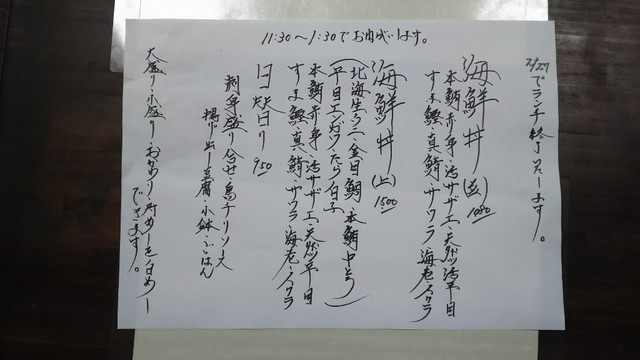 11:30〜1:30でお伺います。
2/27でランチ終了いたします。
海鮮丼(並)1080
本鮪赤身・活サザエ・天然活平目
すま鰹・真鯖・サワラ・海老・イクラ
海鮮丼(上)1500
(北海生うに・金目鯛・本鮪中とろ
平目エンガワ・たら白子)
本鮪赤身・活サザエ・天然平目
すま鰹・真鯖・サワラ・海老・イクラ
日替り 950
刺身盛り合せ・鳥チリソース
揚げ出し豆腐・小鉢・ごはん
大盛り・小盛り・おかわり
できます。